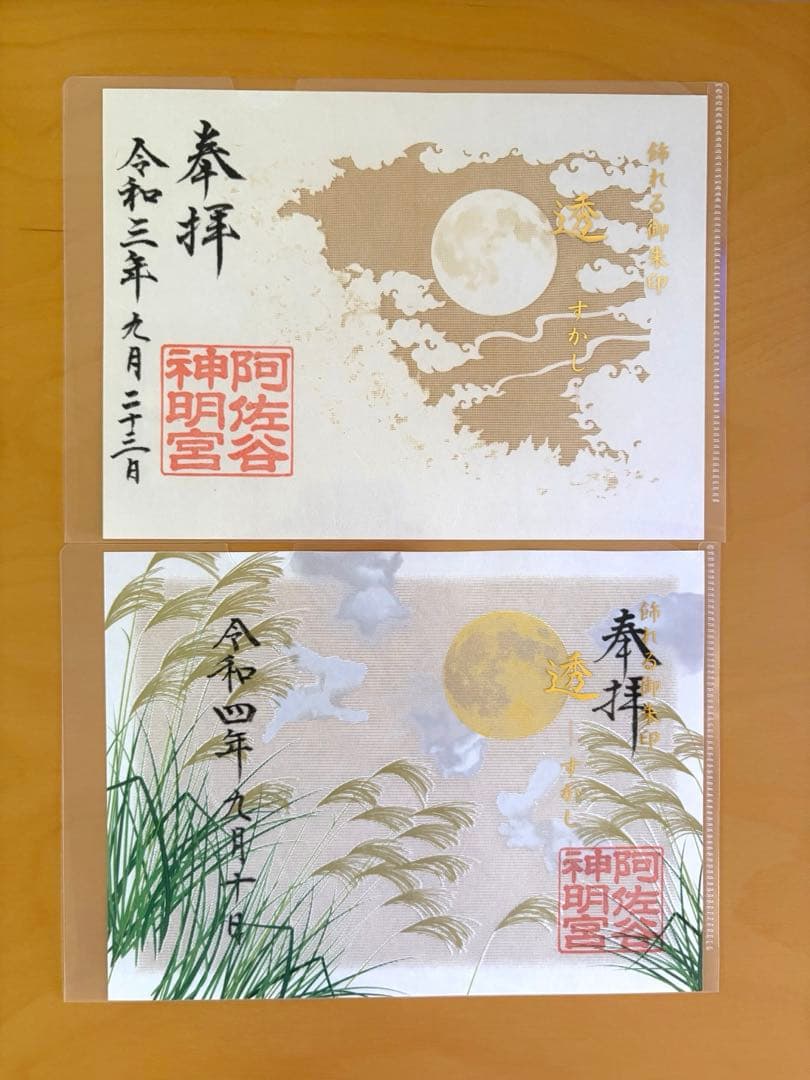 飾れる御朱印
透
すかし
奉拝
令和三年九月二十三日
阿佐谷
神明宮
飾れる御朱印
奉拝
透
―すかし
令和四年九月十日
阿佐谷
神明宮